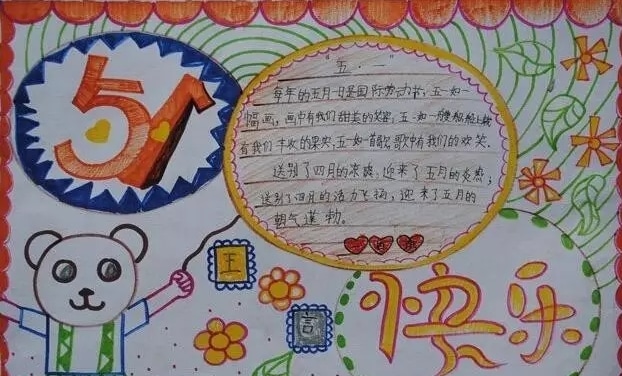 51
"五·一"
每年的五月一日是国际劳动节,五一如一
幅画,画中有我们甜美的笑容,五一如一
有我们丰收的果实,五一如一首歌,歌中有我们的欢笑.
送别了四月的凉爽,迎来了五月的炎热;
送别了四月的活力飞扬,迎来了五月的
朝气蓬勃。
王
言
快乐